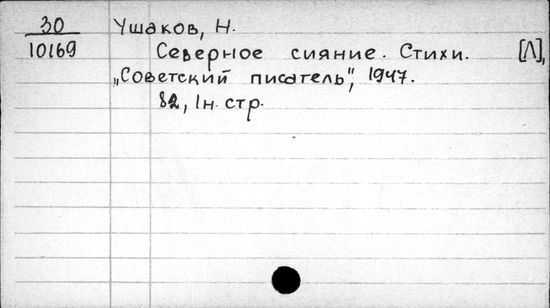 30 Ушаков, Н.
10169 Северное сияние. Стихи. [Л],
„Советский писатель", 1947.
82, 1н. стр.